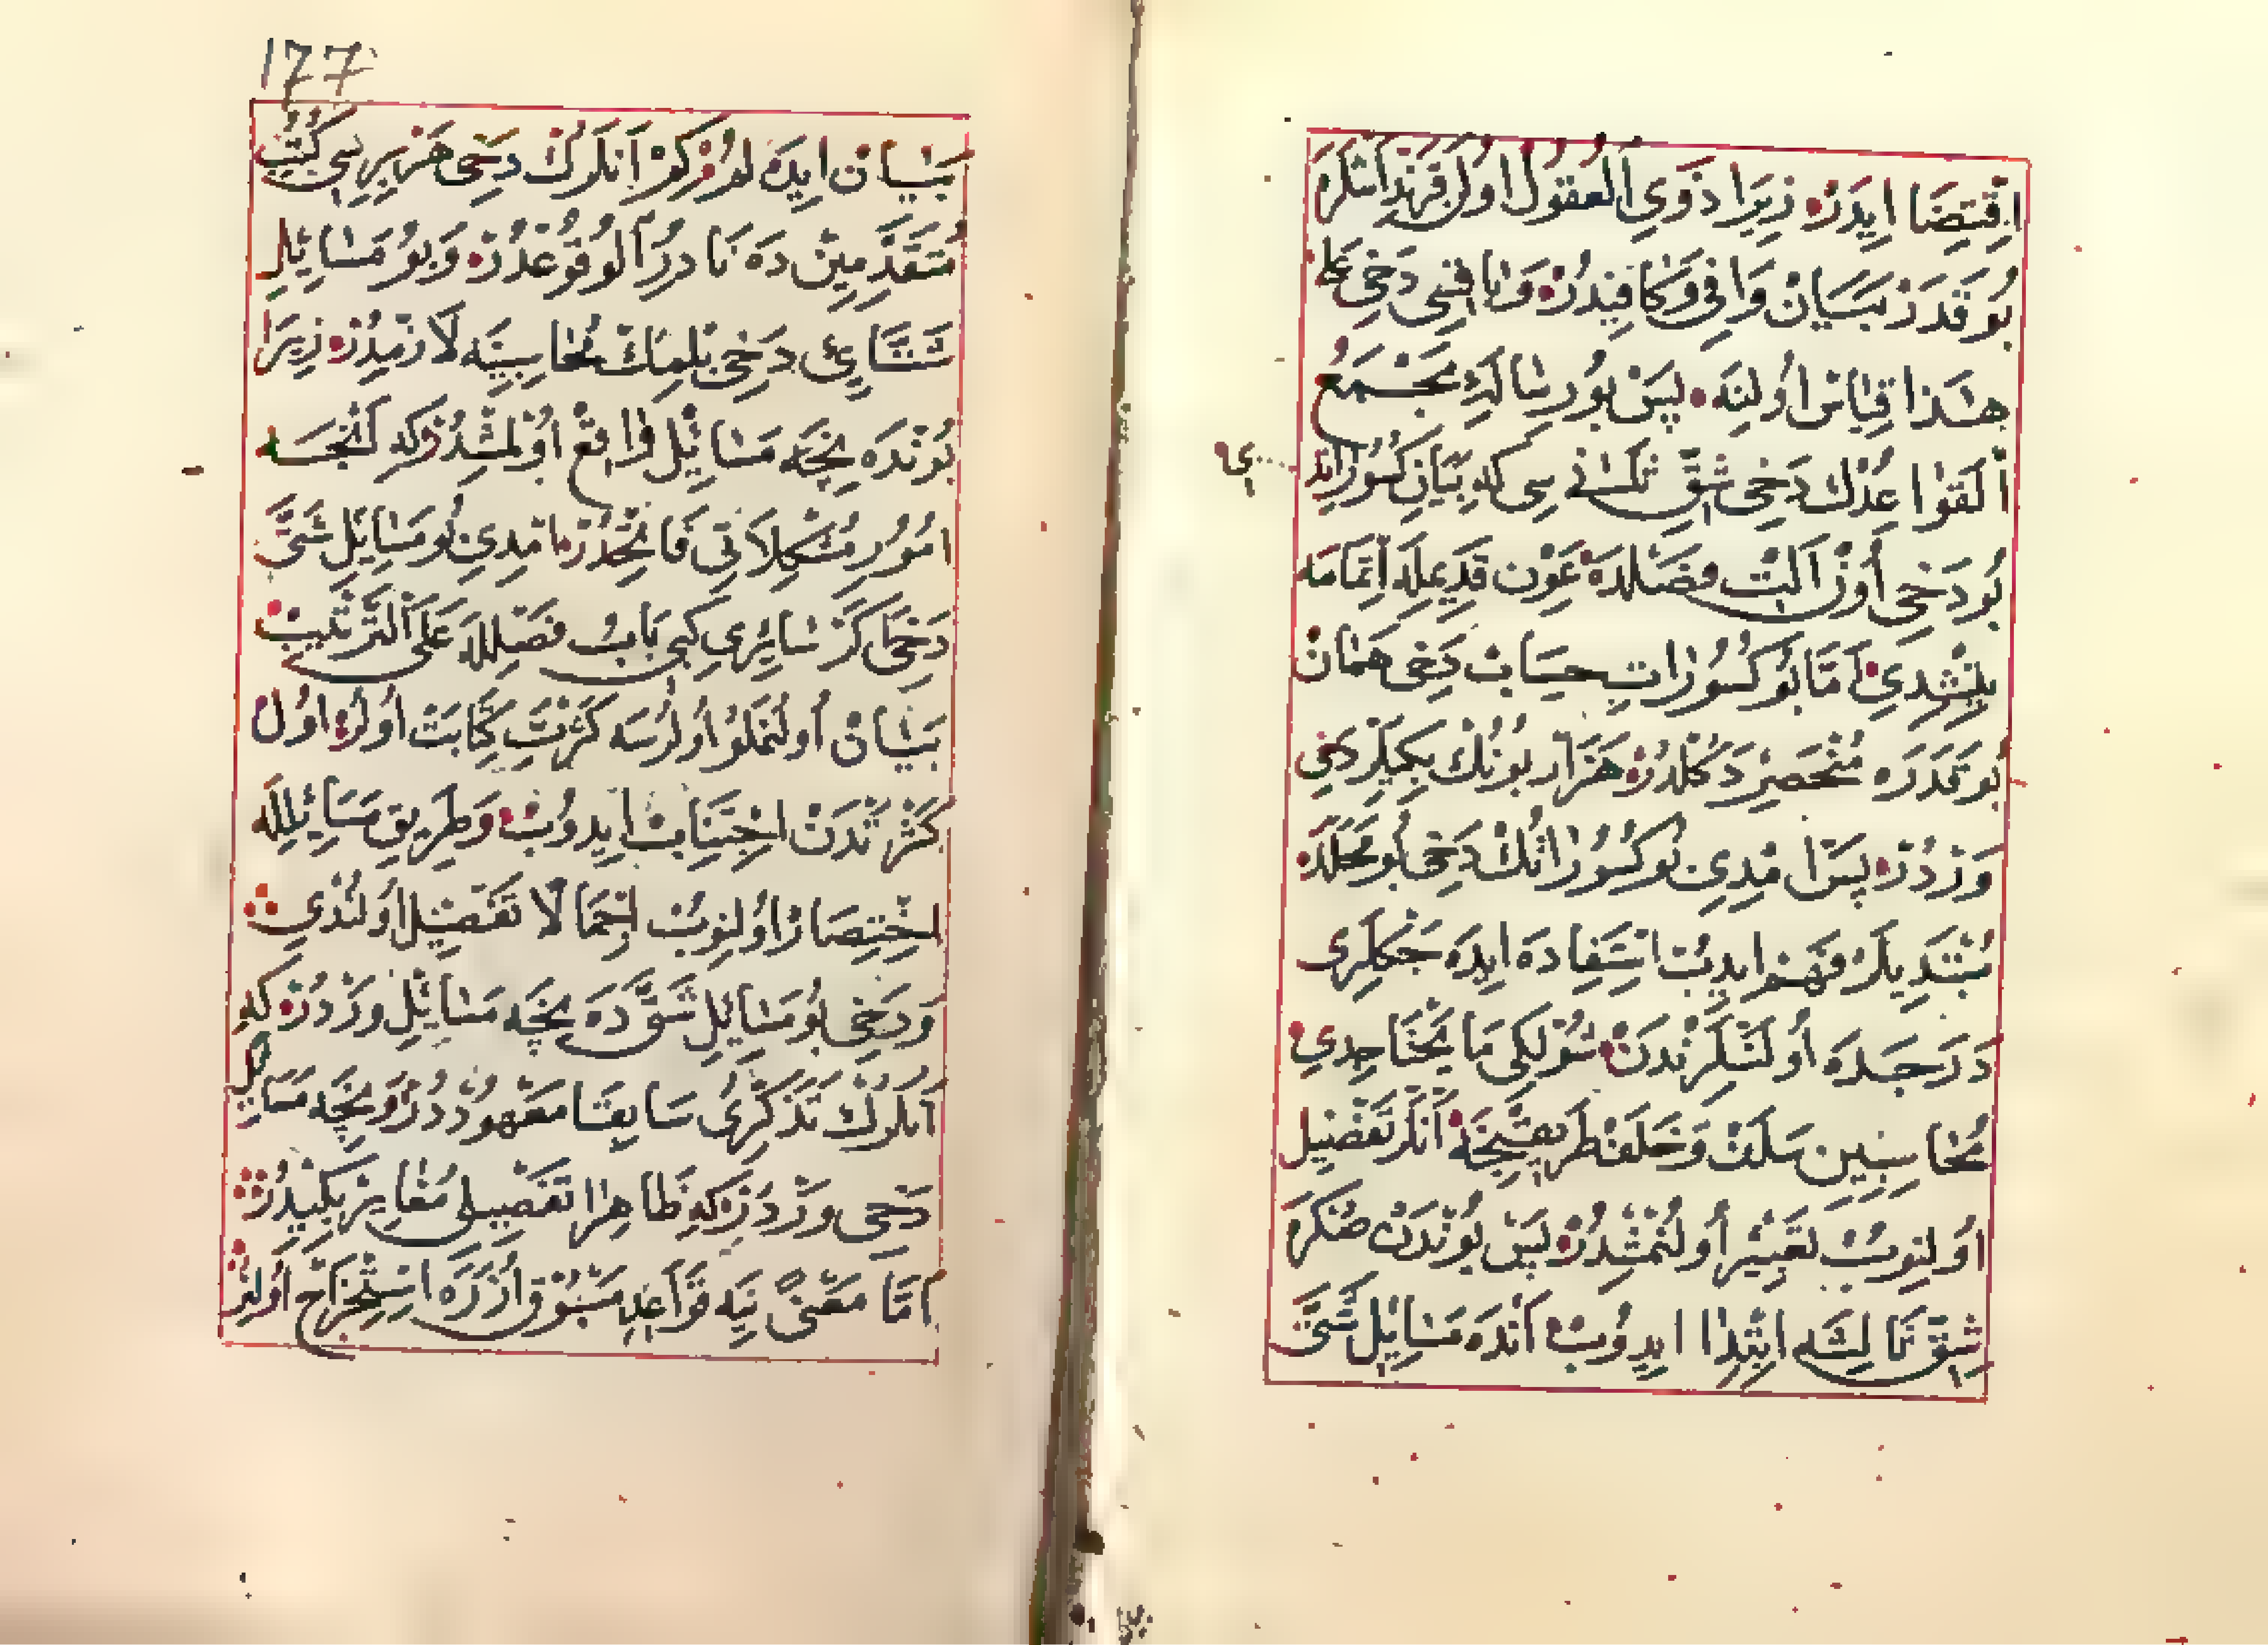 اقتضا ایدر زیرا ذوی العقول اولن فرنداشلر
بو قدر بیان وافی و کافیدر و باقیسی دخی علی
هذا قیاس اولنه پس بو رساله مجمع
القواعدك دخی شق ثانیسی که بیان کسوراتد
بو دخی اون الت فصلده عون قدیمله اتمامه
یتشدی اما بو کسورات حساب دخی همان
بو قدره منحصر دکلدر هزار بونك بکیلر دخی
وردر پس امدی بو کسوراتك دخی بو محلده
مبتدیلر فهم ایدیب استفاده ایده جکلری
درجده اولنلرندن شولکی ما یحتاجدی
محاسبین سلف و خلف طریقنجه انلر تفضیل
اولنوب تعبیر اولنمشدر پس بوندن صکره
شق ثالثه ابتدا ایدوب انده مسایل شتی
177
بیان ایده لوز کر انلرك دخی هر بریسی کتب
متقدمین ده نادر الوقوعدر و بو مسایل
شتایی دخی بلمك محاسبینه لازمدر زیرا
بونده نیجه مسایل واقع اولمشدر که کنجسه
امور مشکلاتی فاتحدر امدی بو مسایل شتی
دخی اکر سایری کبی باب فصلله علی الترتیب
بیان اولنملو اولرسه کثرت کتابت اولور اول
کثرتدن اجتناب ایدوب و طریق مسایلله
اختصار اولنوب اجمالا تفصیل اولندی
و دخی بو مسایل شق ده نیجه مسایل وردر که
انلرك ذکری سابقا معهود در و نیجه مسایل
دخی وردر که ظاهرا تفصیلی مغایر بکیدر
اما معنی ینه قواعد مسبوق اوزره استخراج اولنر